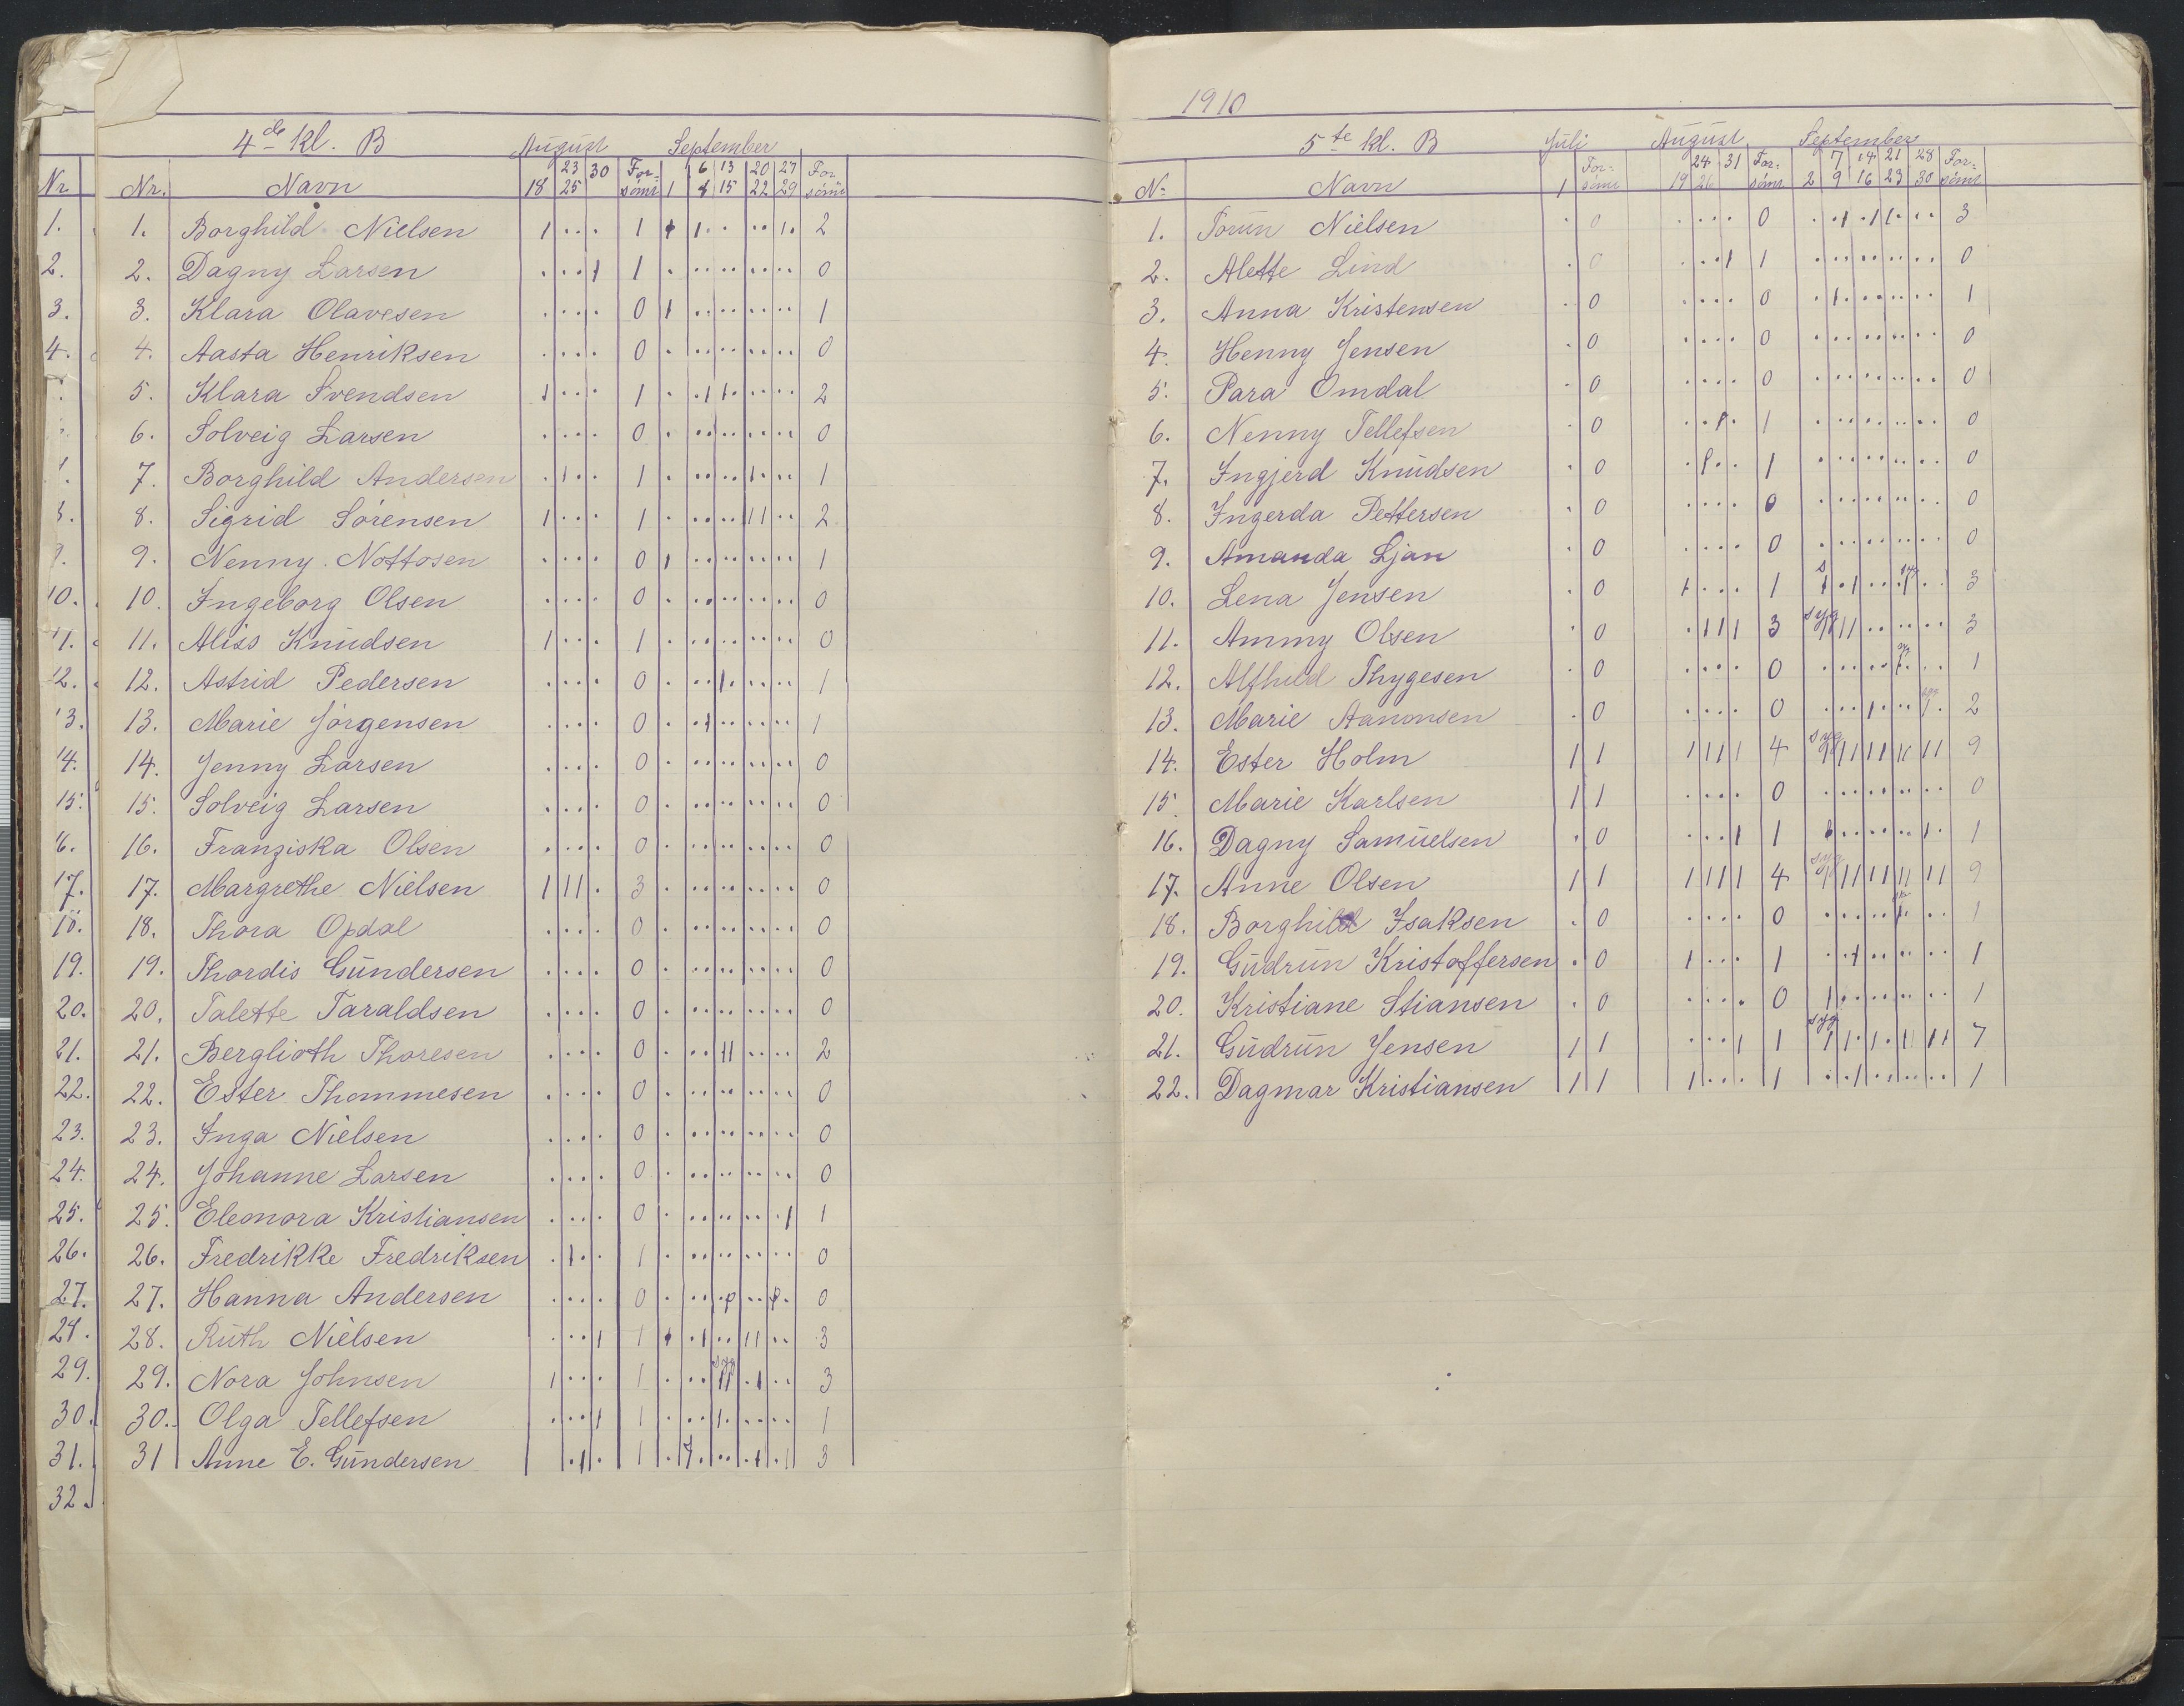 4de Kl. B August September
23 30 For- 6 13 20 27 For
Nr. Navn 18 25 sömt 1 8 15 22 29 sömt
1. Borghild Nielsen 1 . . . 1 1 1 . . . . . 1 . 2
2. Dagny Larsen . . . 1 1 . . . . . . . . . 0
3. Klara Olavesen . . . . 0 1 . . . . . . . . 1
4. Aasta Henriksen . . . . 0 . . . . . . . . . 0
5. Klara Svendsen 1 . . . 1 . . 1 1 . . . . . 2
6. Solveig Larsen . . . . 0 . . . . . . . . . 0
7. Borghild Andersen . 1 . . 1 . . . . . 1 . . . 1
8. Sigrid Sörensen 1 . . . 1 . . . . . 1 1 . . 2
9. Nenny Nottosen . . . . 0 1 . . . . . . . . 1
10. Ingeborg Olsen . . . . 0 . . . . . . . . . 0
11. Aliss Knudsen 1 . . . 1 . . . . . . . . . 0
12. Astrid Pedersen . . . . 0 . . . 1 . . . . . 1
13. Marie Jörgensen . . . . 0 . . 1 . . . . . . 1
14. Jenny Larsen . . . . 0 . . . . . . . . . 0
15. Solveig Larsen . . . . 0 . . . . . . . . . 0
16. Franziska Olsen . . . . 0 . . . . . . . . . 0
17. Margrethe Nielsen 1 1 1 . 3 . . . . . . . . . 0
18. Thora Opdal . . . . 0 . . . . . . . . . 0
19. Thordis Gundersen . . . . 0 . . . . . . . . . 0
20. Talette Taraldsen . . . . 0 . . . . . . . . . 0
21. Berglioth Thoresen . . . . 0 . . . 1 1 . . . . 2
22. Ester Thommesen . . . . 0 . . . . . . . . . 0
23. Inga Nielsen . . . . 0 . . . . . . . . . 0
24. Johanne Larsen . . . . 0 . . . . . . . . . 0
25. Eleonora Kristiansen . . . . 0 . . . . . . . . 1 1
26. Fredrikke Fredriksen . 1 . . 1 . . . . . . . . . 0
27. Hanna Andersen . . . . 0 . . . . p . . p . 0
28. Ruth Nielsen . . . 1 1 1 . 1 . . 1 1 . . 3
29. Nora Johnsen 1 . . . 1 . . . syg 1 1 . 1 . . 3
30. Olga Tellefsen . . . 1 1 . . . 1 . . . . . 1
31 Anne E. Gundersen . 1 . 1 . 1 . . . . 1 . 1 3
Nr
1.
2.
3.
4.
10.
11.
12.
13.
14.
15.
16.
17.
18.
19.
20.
21.
22.
23.
24.
25.
26.
27.
29.
30.
31.
32.
1910
5te Kl. B Juli August September
For- 24 31 For- 7 14 21 28 For-
No Navn 1 sömt 19 26 sömt 2 9 16 23 30 sömt
1. Torun Nielsen . 0 . . . . 0 . . 1 . 1 1 . . . 3
2. Alette Lind . 0 . . . 1 1 . . . . . . . . . 0
3. Anna Kristensen . 0 . . . . 0 . 1 . . . . . . . 1
4. Henny Jensen . 0 . . . . 0 . . . . . . . . . 0
5. Para Omdal . 0 . . . . 0 . . . . . . . . . 0
6. Nenny Tellefsen . 0 . . p . 1 . . . . . . . . . 0
7. Ingjerd Knudsen . 0 . p . . 1 . . . . . . . . . 0
8. Ingerda Pettersen . 0 . . . . 0 . . . . . . . . . 0
9. Amanda Ljan . 0 . . . . 0 . . . . . . . . . 0
10. Lena Jensen . 0 1 . . . 1 s 1 . 1 . . . syg 1 . . 3
11. Ammy Olsen . 0 . 1 1 1 3 syg 1 1 1 . . . . . . 3
12. Alfhild Thygesen . 0 . . . . 0 . . . . . syg 1 . . . 1
13. Marie Aanonsen . 0 . . . . 0 . . . 1 . . . syg 1 . 2
14. Ester Holm 1 1 1 1 1 1 4 syg 1 1 1 1 1 1 1 1 1 9
15. Marie Karlsen 1 1 . . . . 0 . . . . . . . . . 0
16. Dagny Samuelsen . 0 . . . 1 1 . . . . . . . 1 . 1
17. Anne Olsen 1 1 1 1 1 1 4 syg 1 1 1 1 1 1 1 1 1 9
18. Borghild Isaksen . 0 . . . . 0 . . . . . 1 . . . 1
19. Gudrun Kristoffersen . 0 1 . . . 1 . . 1 . . . . . . 1
20. Kristiane Stiansen . 0 . . . . 0 1 . . . . . . . . 1
21. Gudrun Jensen 1 1 . . . 1 1 syg 1 1 . 1 . 1 1 1 1 7
22. Dagmar Kristiansen 1 1 1 . . . 1 . . 1 . . . . . . 1